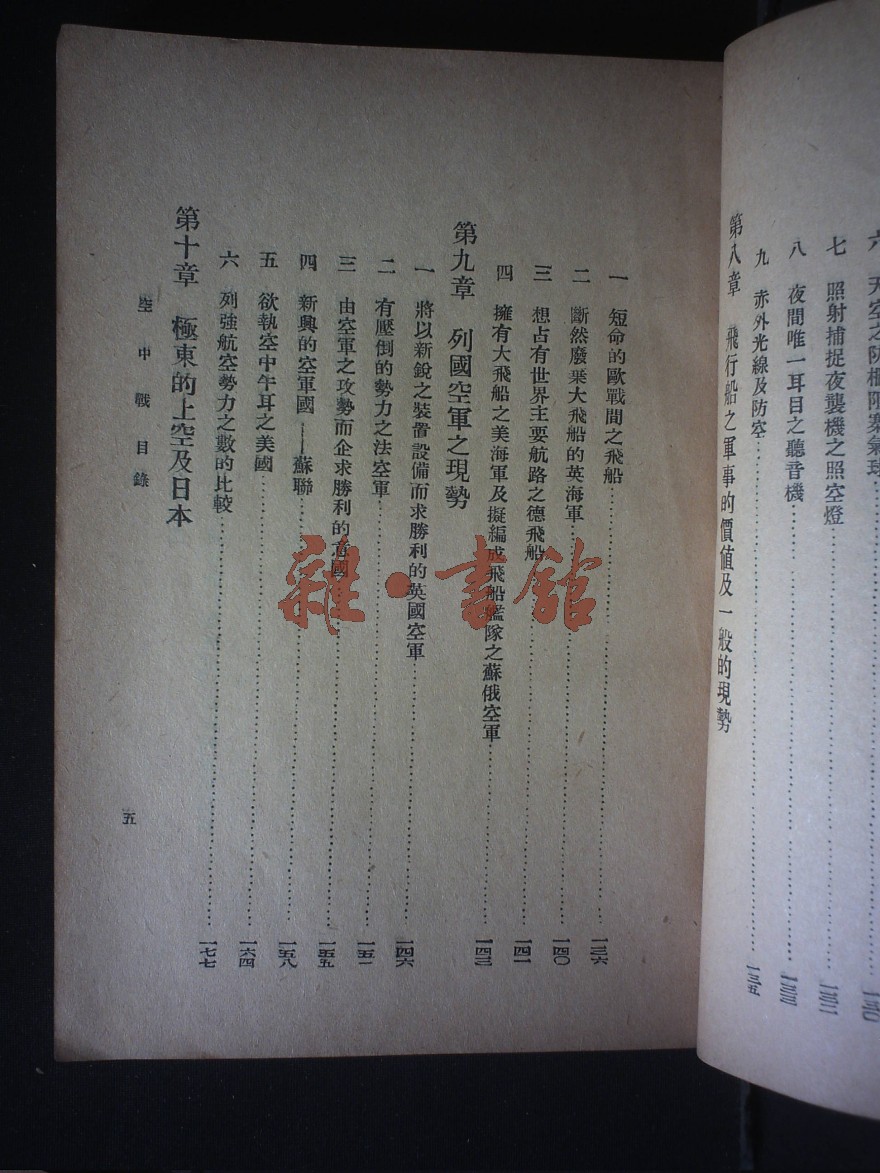 六　天空之防柵阻塞氣球……一三〇
七　照射捕捉夜襲機之照空燈……一三二
八　夜間唯一耳目之聽音機……一三三
九　赤外光線及防空……一三五
第八章　飛行船之軍事的價值及一般的現勢
一　短命的歐戰間之飛船……一三六
二　斷然廢棄大飛船的英海軍……一四〇
三　想占有世界主要航路之德飛船……一四一
四　擁有大飛船之美海軍及擬編成飛船艦隊之蘇俄空軍……一四三
第九章　列國空軍之現勢
一　將以新銳之裝置設備而求勝利的英國空軍……一四六
二　有壓倒的勢力之法空軍……一五一
三　由空軍之攻勢而企求勝利的意國……一五五
四　新興的空軍國——蘇聯……一五八
五　欲執空中牛耳之美國……一六四
六　列強航空勢力之數的比較……一七七
第十章　極東的上空及日本
空中戰　目錄
五
雜·書館